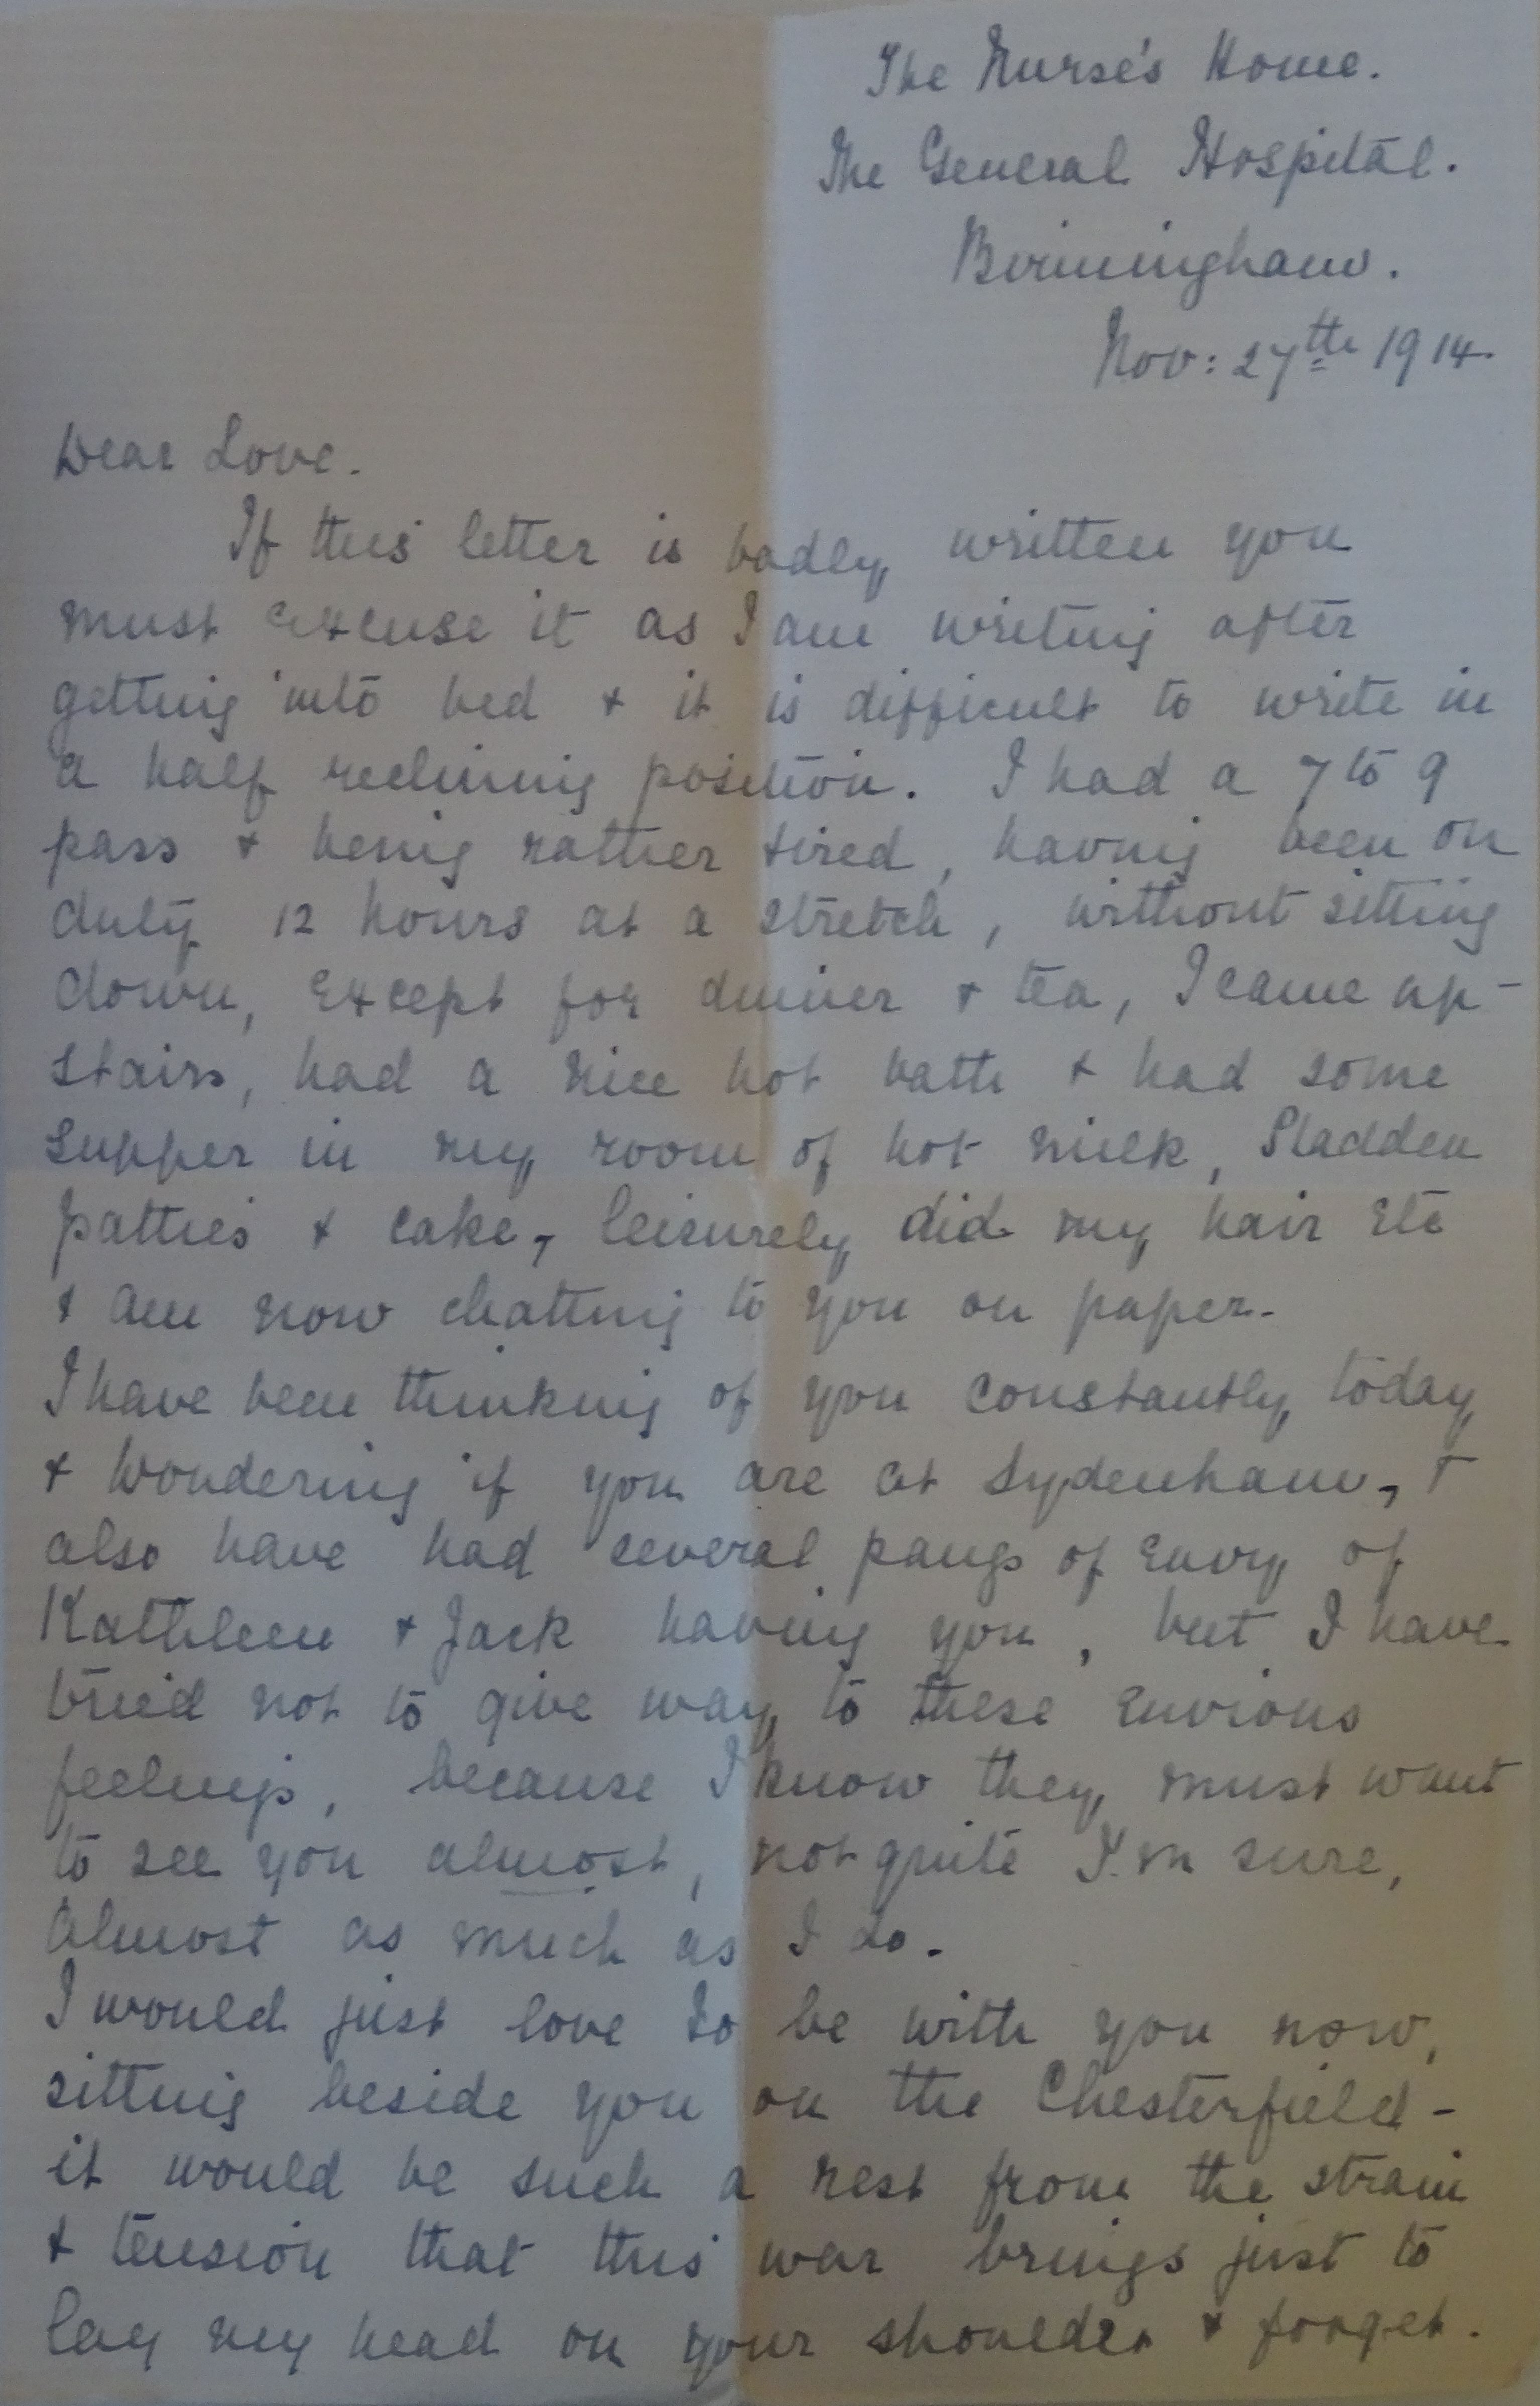 The Nurse's Home.
The General Hospital.
Birmingham.
Nov: 27th 1914.
Dear Love.
If this letter is badly written you
must excuse it as I am writing after
getting into bed & it is difficult to write in
a half reclining position. I had a 7 to 9
pass & being rather tired, having been on
duty 12 hours at a stretch, without sitting
down, except for dinner & tea, I came up-
stairs, had a nice hot bath & had some
supper in my room of hot milk, Sladden
patties & cake, leisurely did my hair etc
& am now chatting to you on paper.
I have been thinking of you constantly today
& wondering if you are at Sydenham, &
also have had several pangs of envy of
Kathleen & Jack having you, but I have
tried not to give way to these envious
feelings, because I know they must want
to see you almost, not quite I'm sure,
almost as much as I do.
I would just love to be with you now,
sitting beside you on the Chesterfield -
it would be such a rest from the strain
& tension that this war brings just to
lay my head on your shoulder & forget.